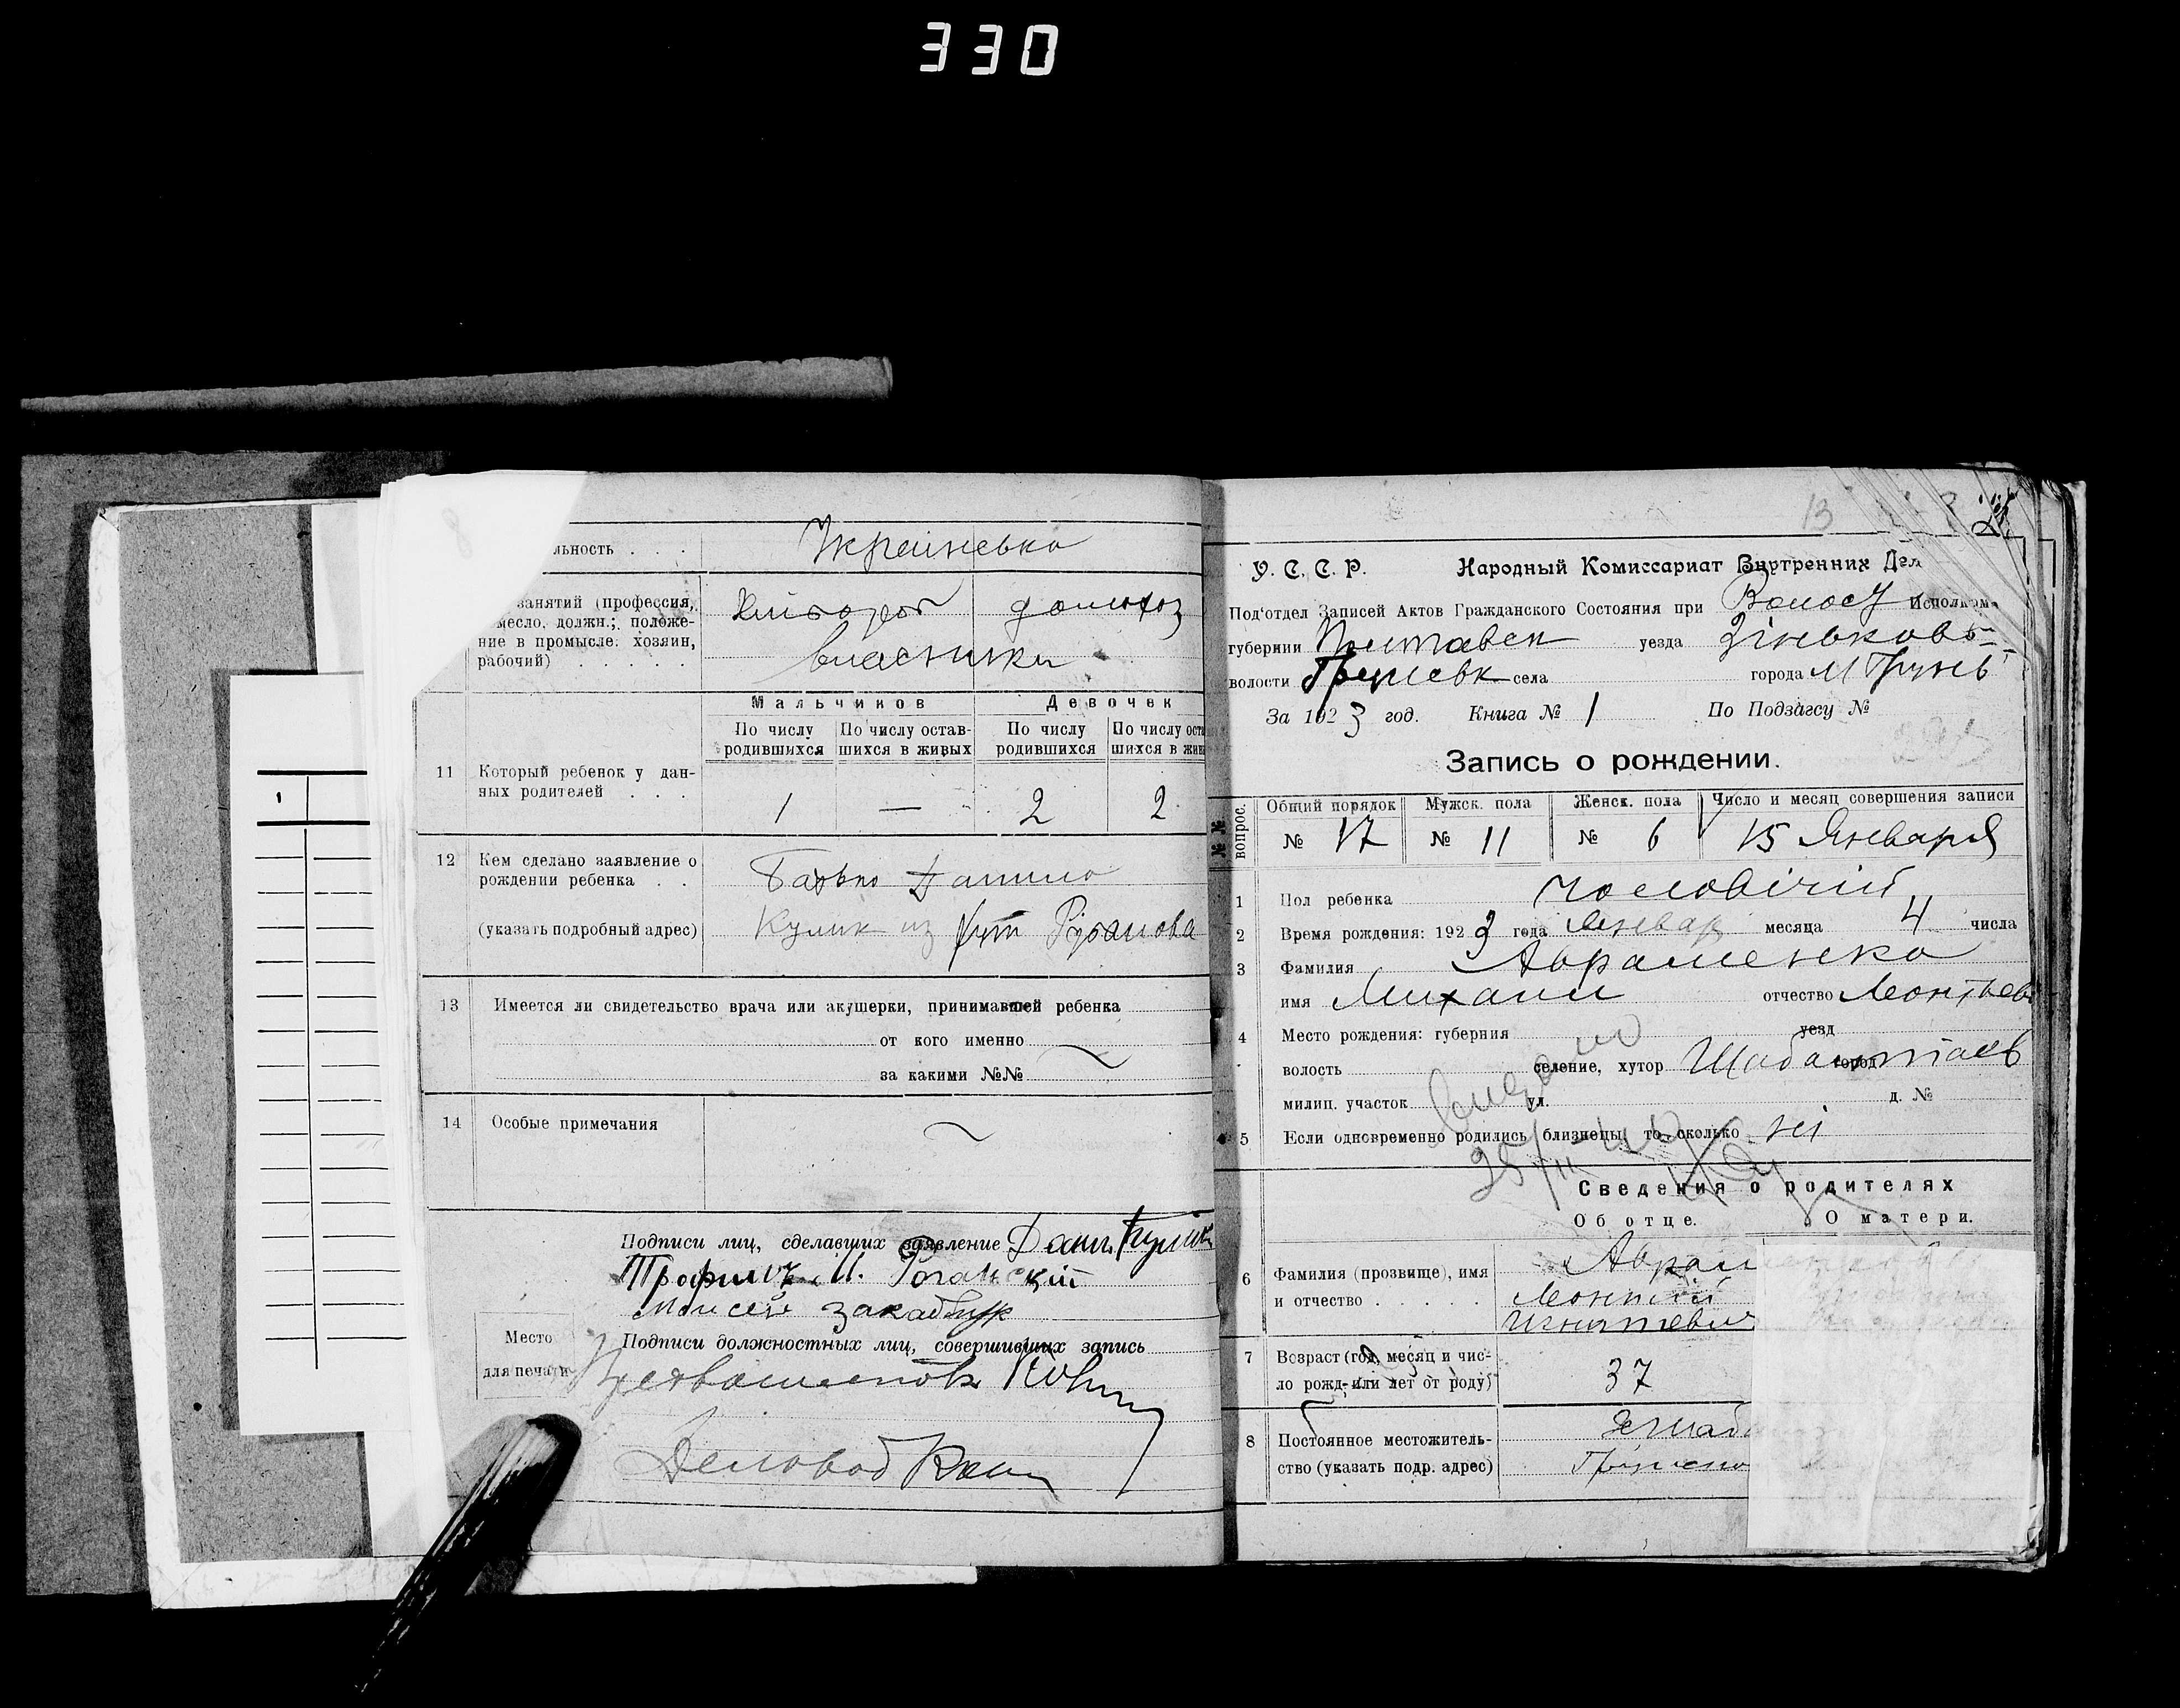 330
8
льность . . . Украинська
занятий (профессия,
месло, должн.; положе-
ние в промысле: хозяин,
рабочий) . . . . .
Хлібороб домохоз
власники
Мальчиков Девочек
По числу родившихся По числу остав-шихся в живых По числу родившихся По числу оста шихся в жив
11 Который ребенок у дан-
ных родителей . . . 1 — 2 2
12 Кем сделано заявление о
рождении ребенка . . Батько Данило
(указать подробный адрес) Кулик из хут
13 Имеется ли свидетельство врача или акушерки, принимавшей ребенка
от кого именно
за какими №№
14 Особые примечания
Подписи лиц, сделавших заявление Дан. Кулик
Трофим М.
Моисей
Место
для печати
Подписи должностных лиц, совершивших запись
Деловод
13
У. С. С. Р. Народный Комиссариат Внутренних Дел
Под'отдел Записей Актов Гражданского Состояния при Волос Исполком
губернии Полтавск уезда Зіньковс
волости Грунсвк села города М Грунь
За 1923 год. Книга № 1 По Подзагсу №
Запись о рождении.
№№ вопрос. Общий порядок Мужск. пола Женск. пола Число и месяц совершения записи
№ 17 № 11 № 6 15 Января
1 Пол ребенка Чоловічий
2 Время рождения: 1923 года Январ месяца 4 числа
3 Фамилия Авраменко
имя Михаил отчество Леонтьев
4 Место рождения: губерния уезд
волость селение, хутор город
милиц. участок ул. д. №
5 Если одновременно родились близнецы, то сколько ні
Сведения о родителях
Об отце. О матери.
6 Фамилия (прозвище), имя
и отчество . . . . .
Аврам
Леонтий
Игнатевич
7 Возраст (год, месяц и чис-
ло рожд. или лет от роду) 37
8 Постоянное местожитель-
ство (указать подр. адрес)